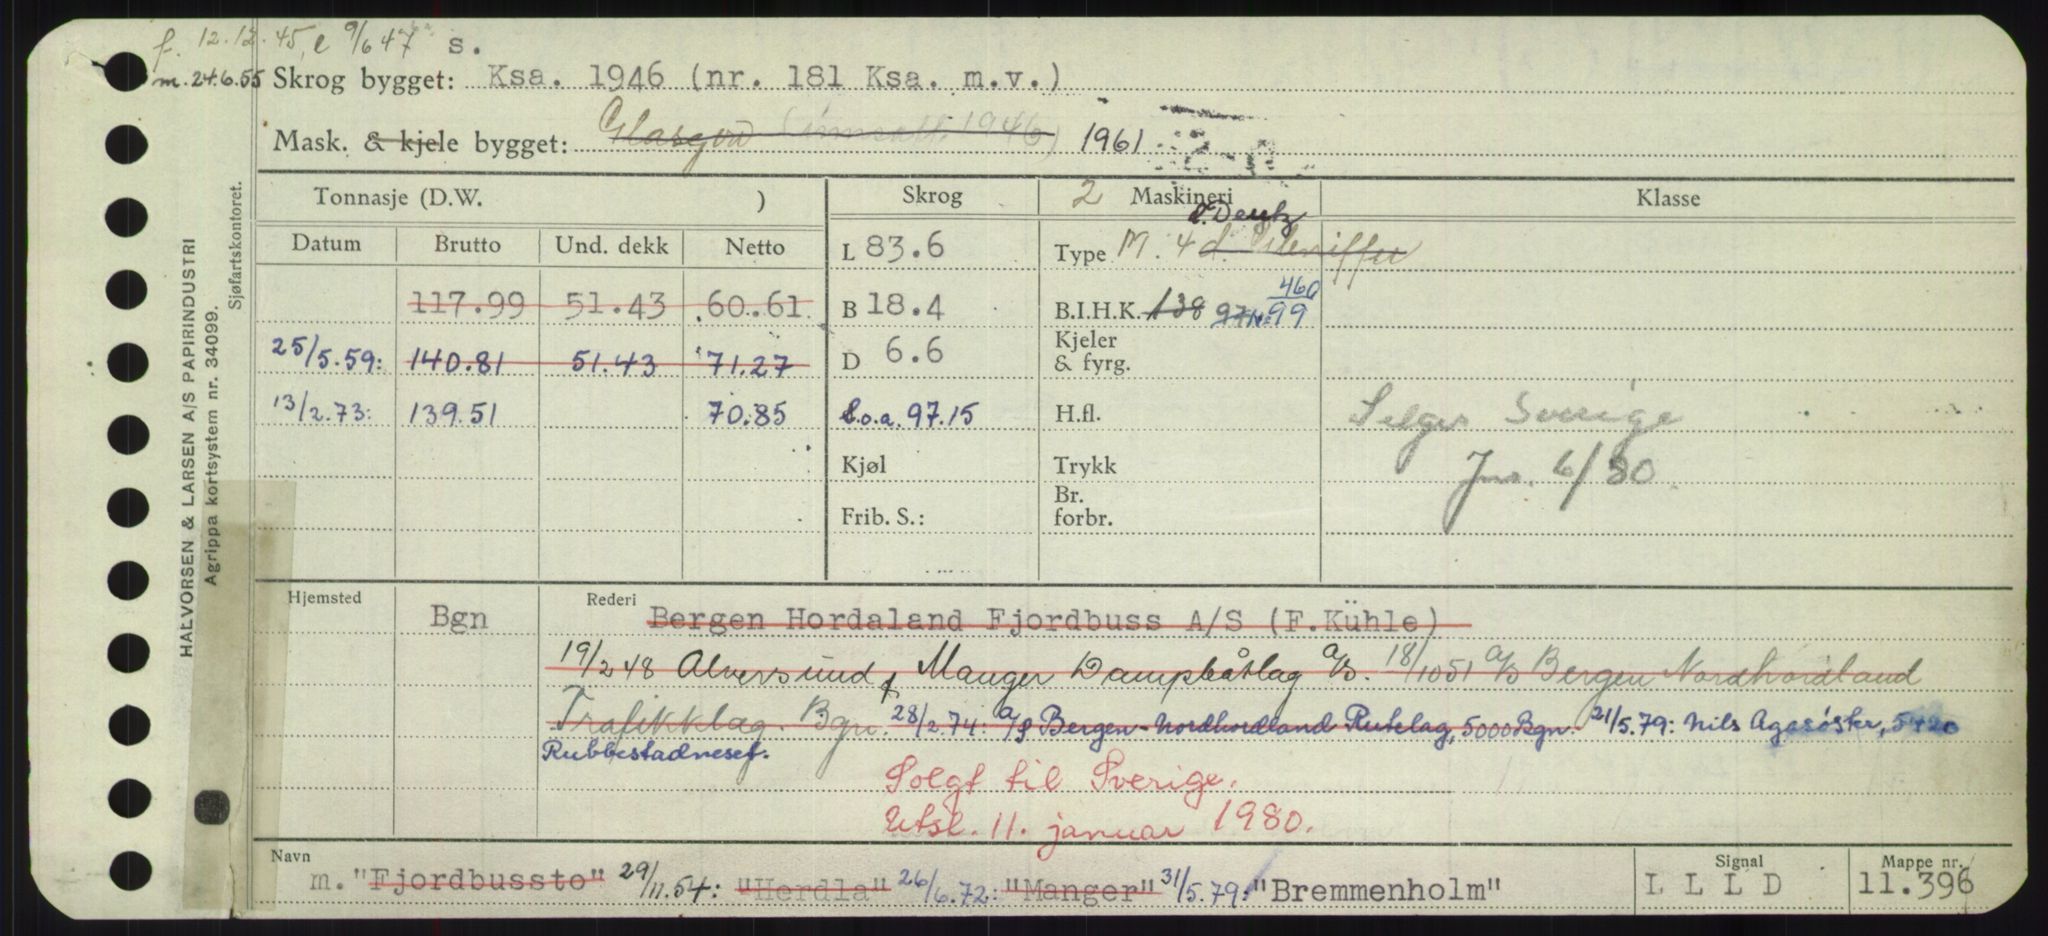 f. 12.12.45, e 9/6 47 s.
m. 24.6.55 Skrog bygget: Ksa. 1946 (nr. 181 Ksa. m.v.)
Mask. & kjele bygget: Glasgow 1946) 1961
Tonnasje (D.W. ) Skrog 2 Maskineri Klasse
d. Deutz
Datum Brutto Und. dekk Netto L 83.6 Type M. 4 d.
117.99 51.43 60.61 B 18.4 B.I.H.K. 138 460 99
25/5.59: 140.81 51.43 71.27 D 6.6 Kjeler & fyrg.
13/2.73: 139.51 70.85 l.o.a. 97.15 H.fl. Selges Sverige
Kjøl Trykk Jnr. 6/80.
Frib. S.: Br. forbr.
Hjemsted Bgn Rederi Bergen Hordaland Fjordbuss A/S (F.Kühle)
19/2 48 Alversund & Manger Dampbåtlag a/s. 18/10 51 a/s Bergen Nordhordland
Trafikklag. Bgn. 28/2.74: a/s Bergen-Nordhordland Rutelag, 5000 Bgn. 21/5.79: Nils Agasøster, 5420
Rubbestadneset.
Solgt til Sverige.
Utsl. 11. januar 1980.
Navn Signal Mappe nr.
m. "Fjordbussto" 29/11.54: "Herdla" 26/6.72: "Manger" 31/5.79: "Bremmenholm" L L L D 11.396
HALVORSEN & LARSEN A/S PAPIRINDUSTRI
Agrippa kortsystem nr. 34099.
Sjøfartskontoret.